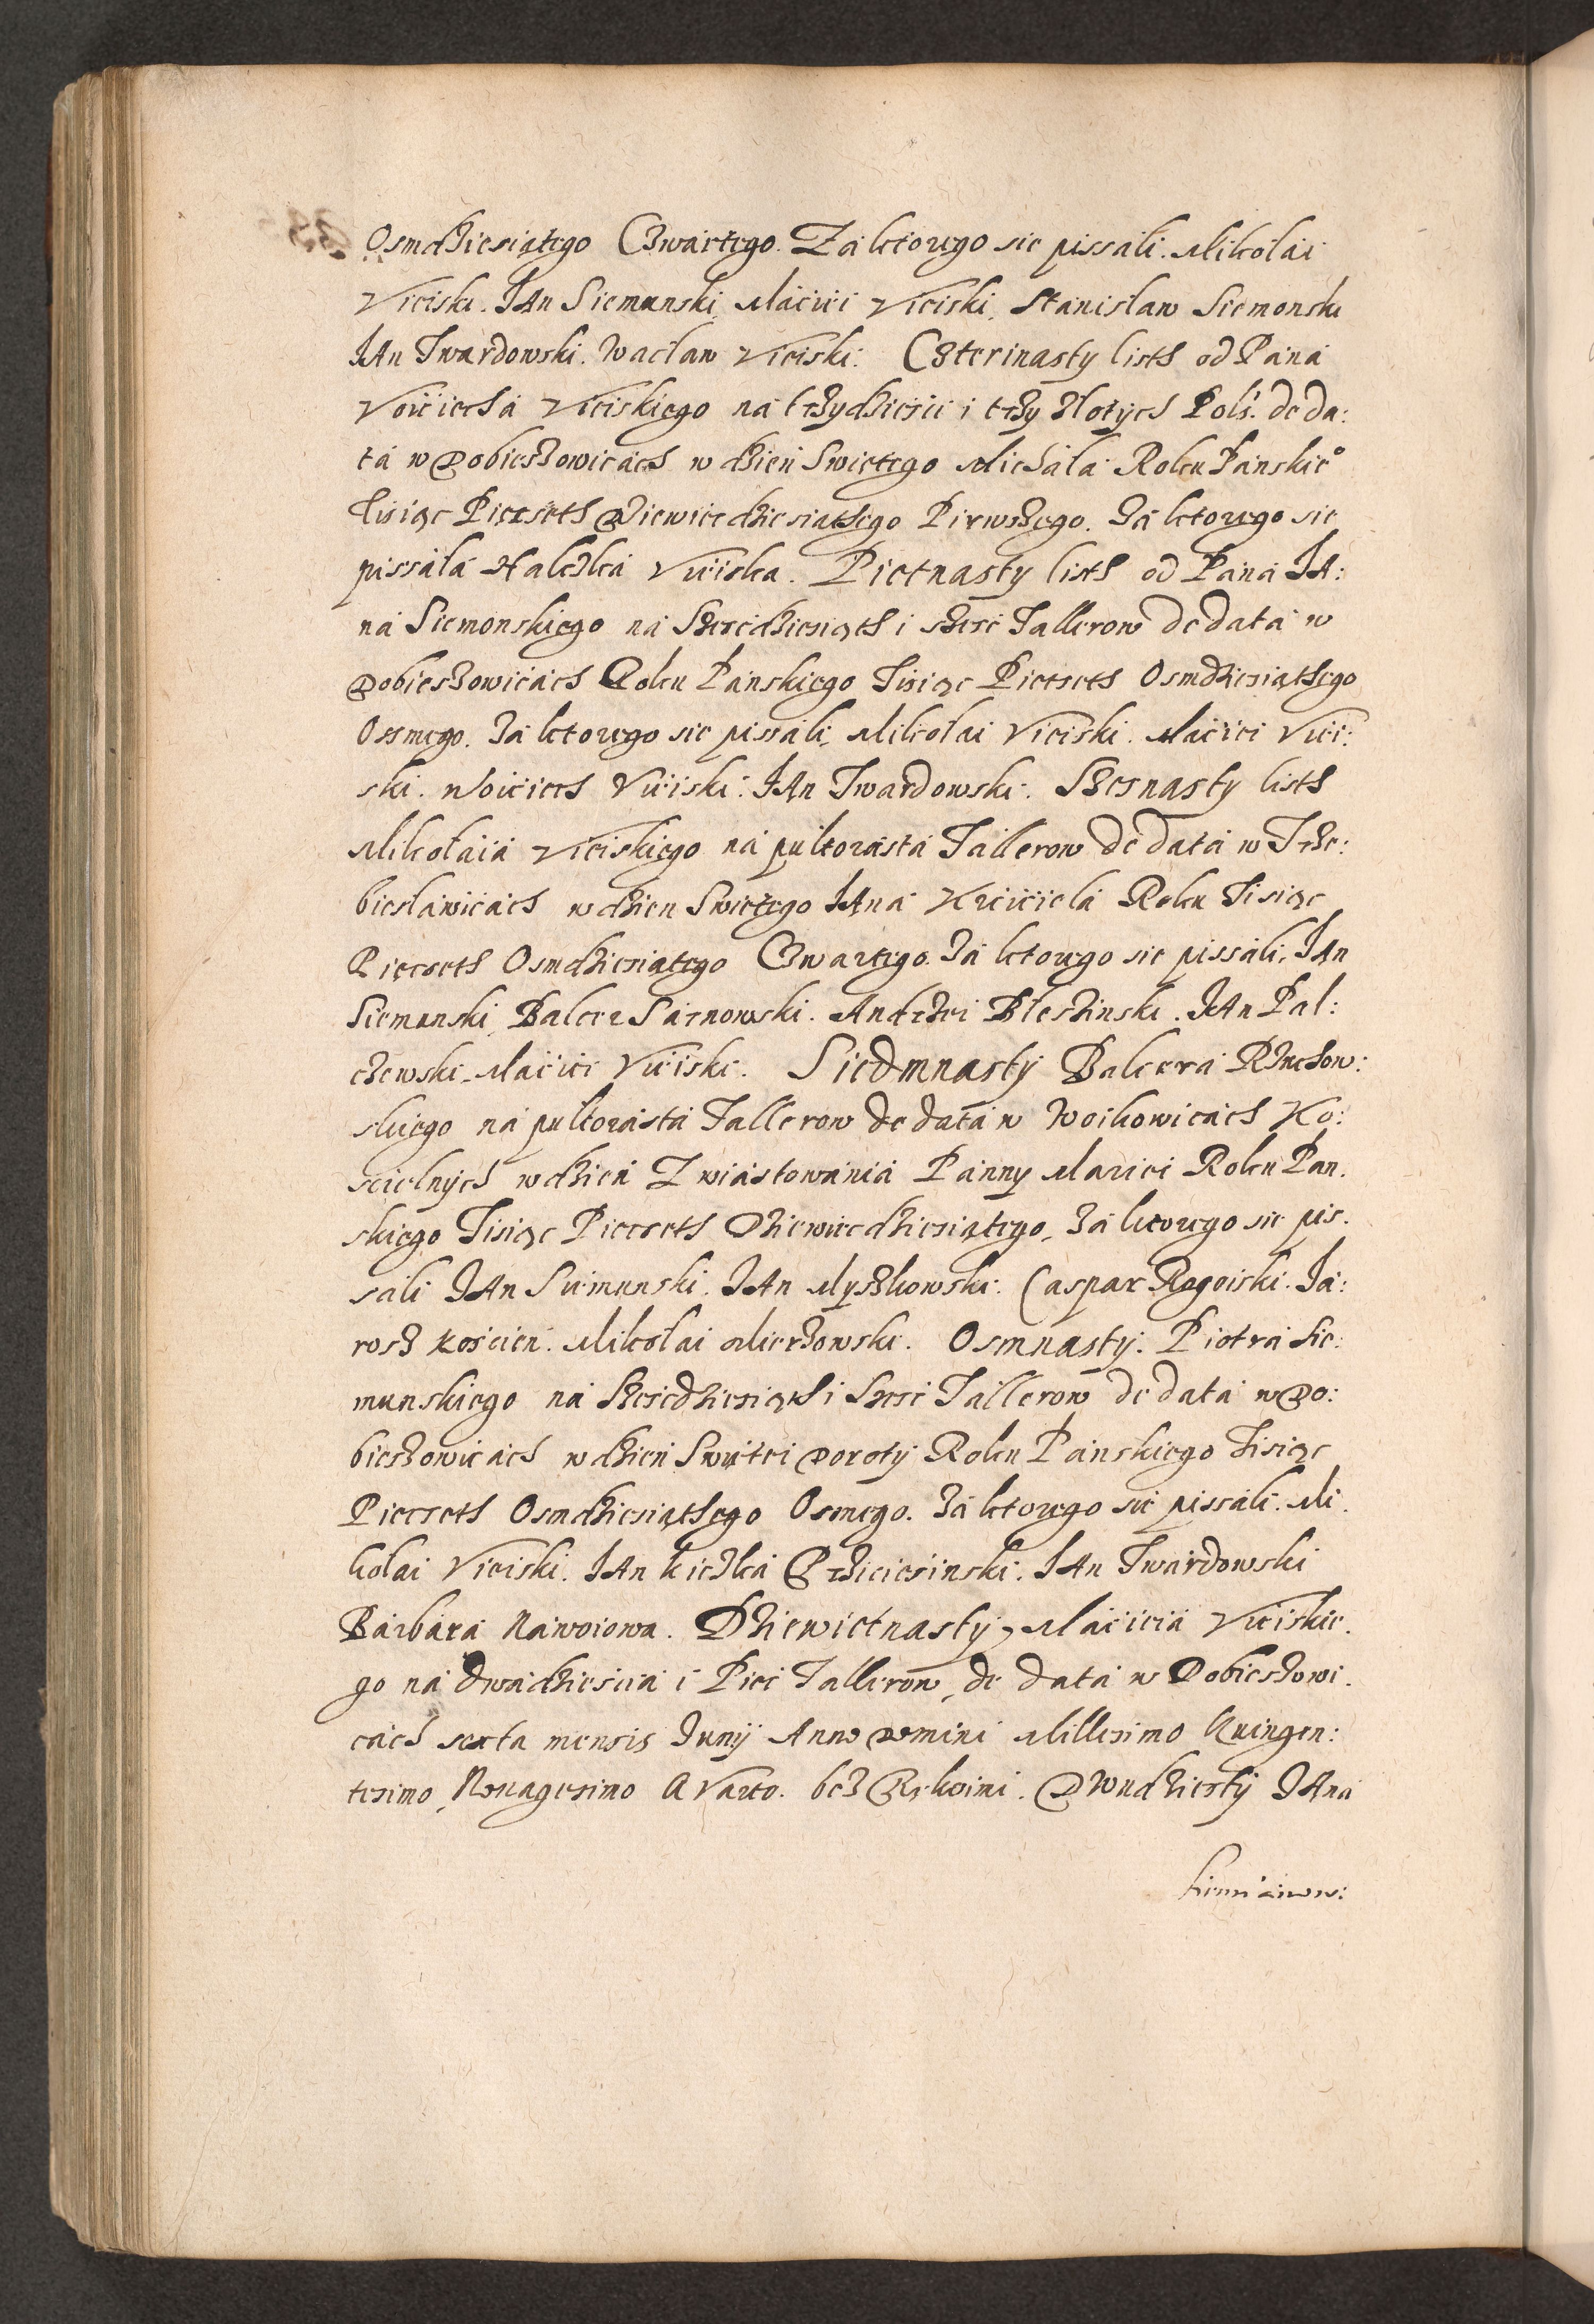 Osmdziesiątego Czwartego. Zá ktorego sie pissáli. Mikołái
Uieiski. JAn Siemunski, Máciei Uieiski. Stanisław Siemonski
JAn Twardowski. Wacław Uieiski. Czterinasty listh od Páná
Voićiechá Uieiskiego ná trzydzieśći i trzy złotych Pols. de da:
tá w Dobieszowicách w dzień Swiętego Micháłá Roku Páńskieº
Tisiąc Piećseth Dziewiećdziesiąthego Pirwszego. Zá ktorego sie
pissáłá Hálszká Uieiska. Pietnasty listh od Páná JA:
ná Siemonskiego ná Sześćdziesiąth i sześć Tallerow de datá w
Dobieszowicách Roku Páńskiego Tisiąc Piećseth Osmdziesiąthego
Ossmego. Zá ktorego sie pissáli, Mikołai Uieiski. Máciei Uiei:
ski. Woićiech Uieiski. JAn Twardowski. Szesnasty listh
Mikołáiá Uieiskiego ná pułtorástá Tallerow de datá w Trze:
biesłáwicách w dzień Swiętego JAná Krzćićielá Roku Tisiąc
Piećseth Osmdziesiątego Czwartego. Zá ktorego sie pissáli, JAn
Siemunski, Balcer Sárnowski. Andrzei Bleszinski. JAn Pal:
czewski, Máćiei Uieiski. Siedmnasty Balcerá Rzuchow:
skiego ná pułtorástá Tallerow de datá w Woikowicách Ko:
śćielnych w dzień Zwiástowániá Pánny Mariei Roku Pan.
skiego Tisiąc Piećseth Dziewiećdziesiątego, Zá ktorego sie pis.
sali JAn Siemunski. JAn Myszkowski. Caspar Rogoiski. Já:
rosz Kośćień. Mikołai Mierzowski. Osmnasty. Piotrá Sie:
munskiego ná Sześćdziesiąth i Sześć Tallerow de datá w Do:
bieszowicách w dzień Swiętei Doroty Roku Páńskiego Tisiąc
Piećseth Osmdziesiąthego Osmego. Zá ktorego sie pissáli. Mi.
kołai Uieiski. JAn Kiczká Przićiesinski. JAn Twárdowski
Bárbárá Nawoiowa. Dziewietnasty, Máćieiá Uieiskie.
go ná Dwádzieśćiá i Pieć Tallerow, de datá w Dobieszowi.
cách sexta mensis Junÿ Anno Domini Millesimo Quingen:
tesimo, Nonagesimo QVarto. bez Rękoimi. Dwudziesty JAná